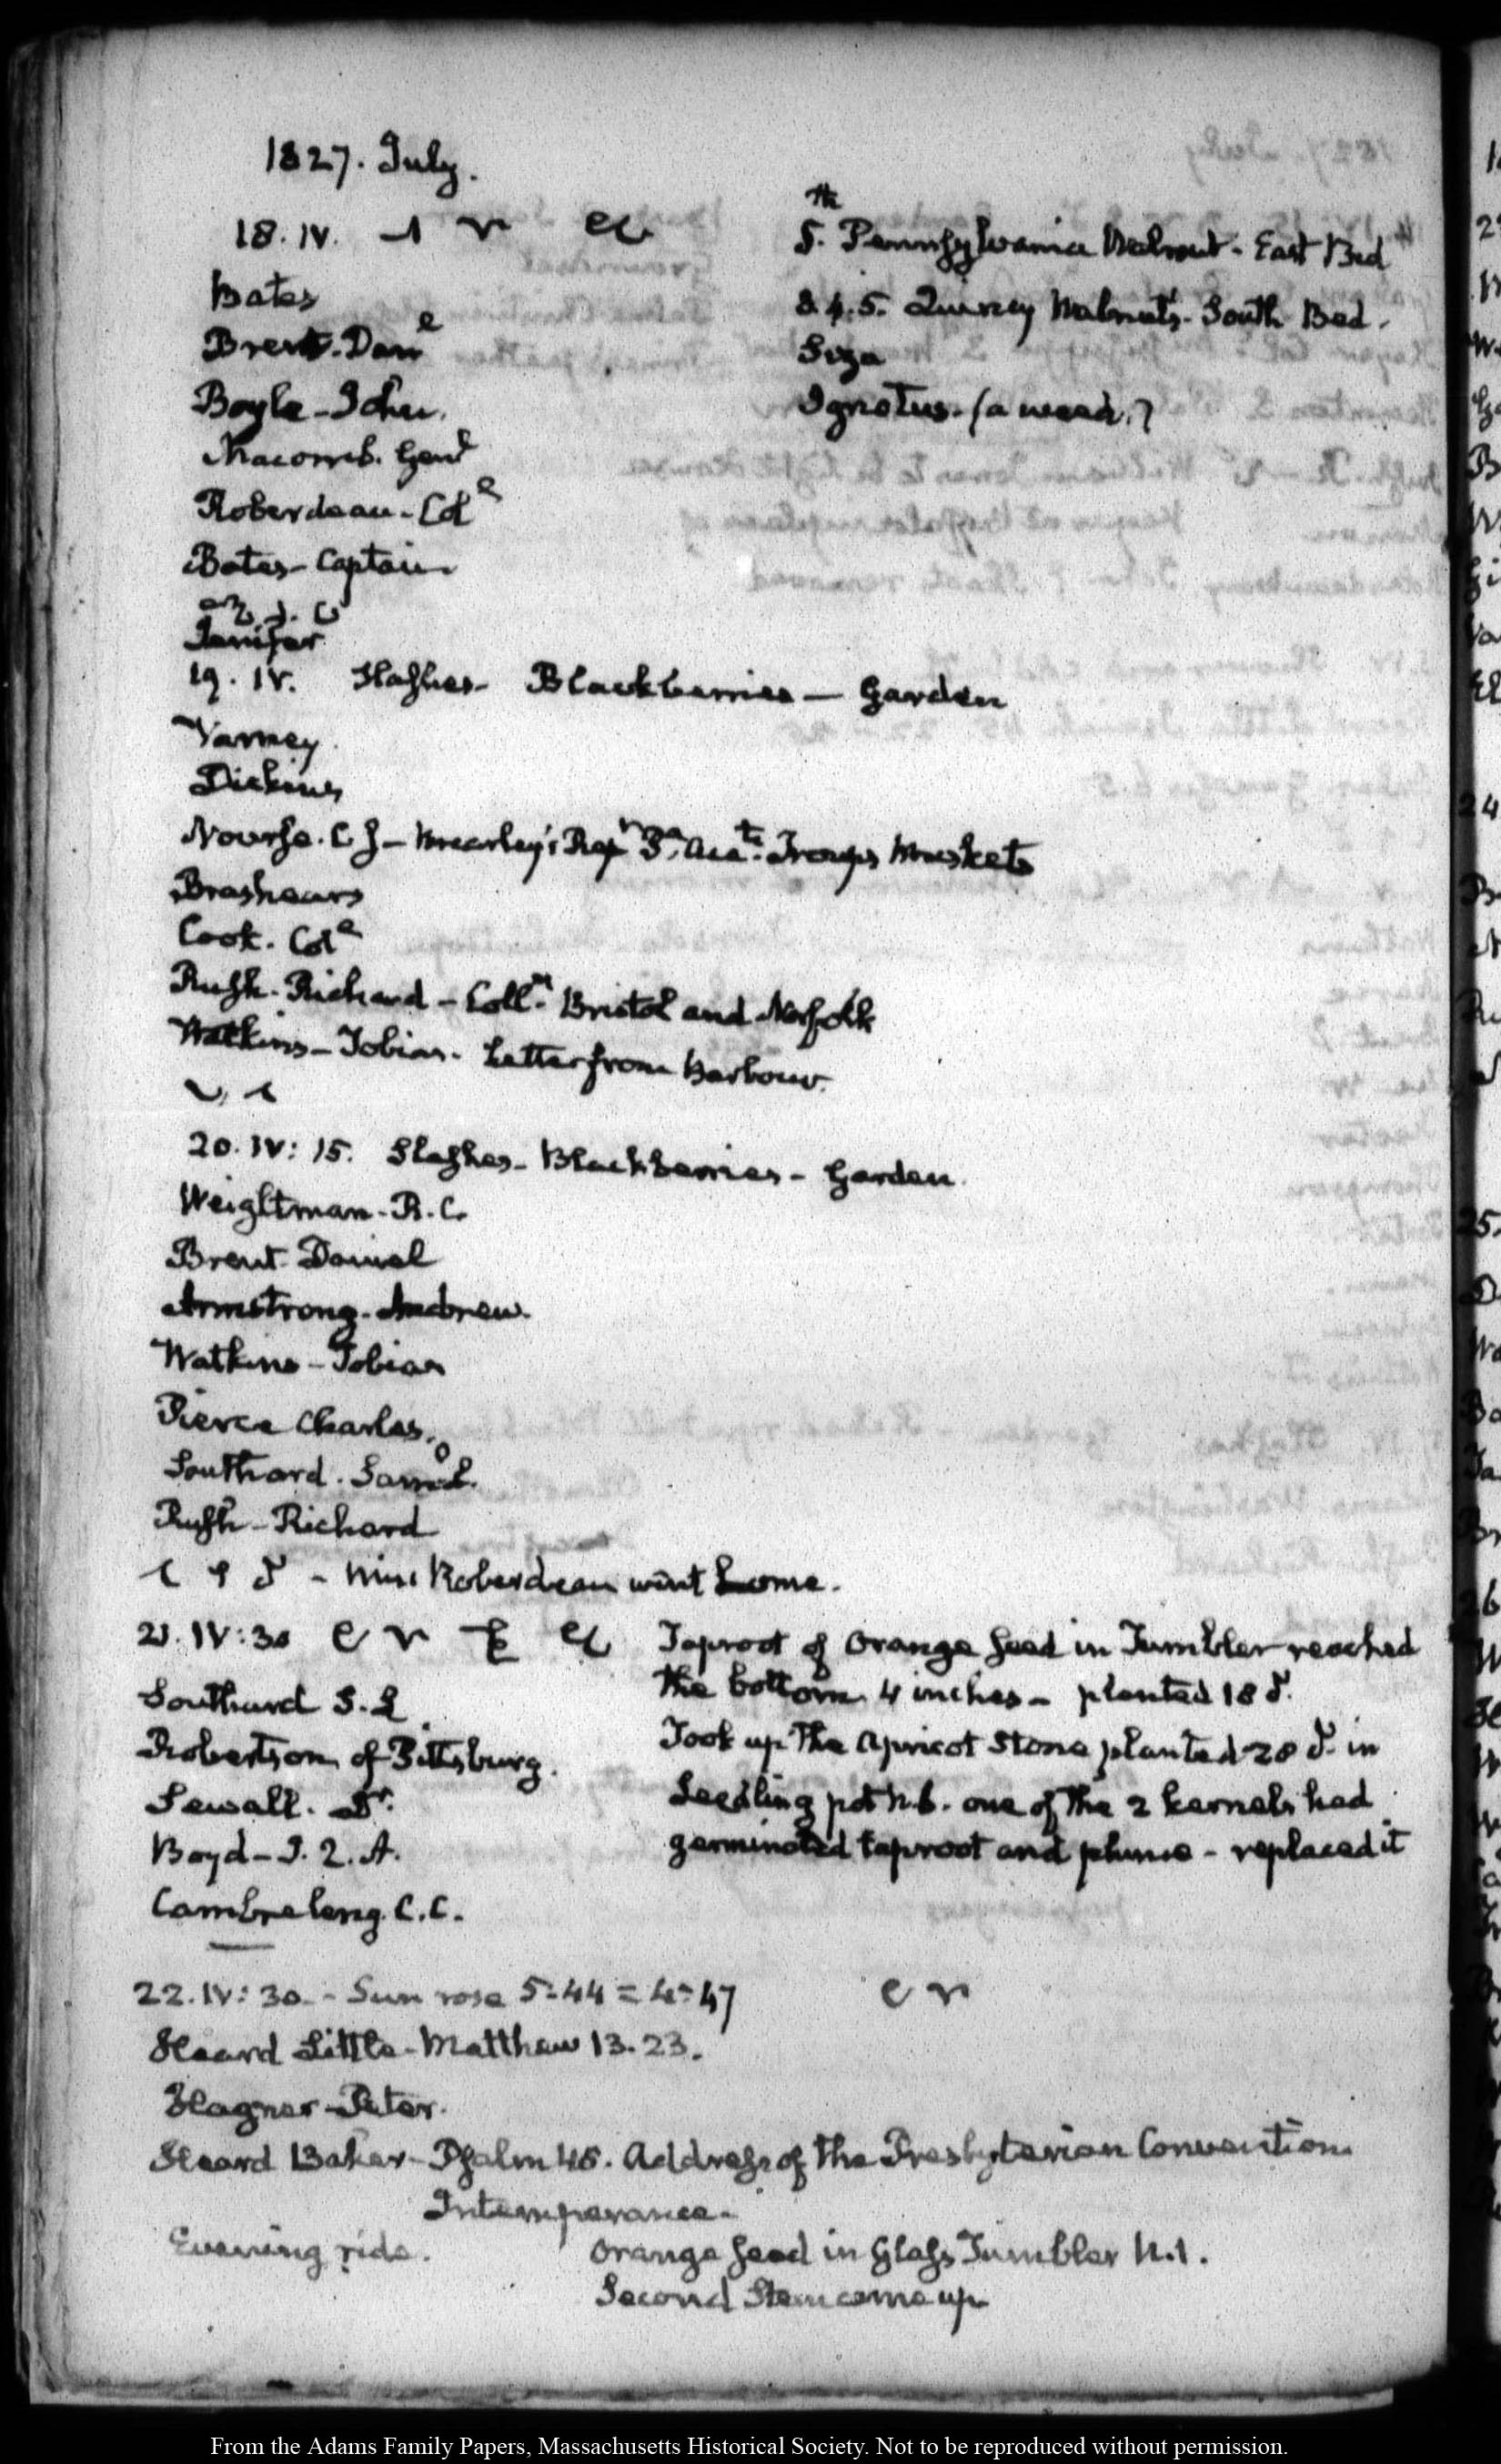 1827. July.
18. IV.
Bates
Brent. Danl
Boyle - John.
Macomb. Genl
Roberdeau - Coll
Bates - Captain
Jenifer
th
5. Pennsylvania Walnut - East Bed
3. 4. 5. Quincy Walnuts - South Bed.
Ignotus - (a weed.)
19. IV. Slashes - Blackberries - Garden
Varney
Dickins
Nourse. C J - Troops Muskets
Brashears
Cook. Coll
Rush - Richard - Colln Bristol and Norfolk
Watkins - Tobias - Letter from Barbour.
20. IV: 15. Slashes - Blackberries - Garden.
Weightman - R. C.
Brent Daniel
Armstrong - Andrew.
Watkins - Tobias
Pierce Charles.
Southard. Saml L.
Rush - Richard
- Miss Roberdeau went home.
21. IV: 30
Southard S. L
Robertson of Pittsburg.
Sewall. Dr.
Boyd - J. Q. A.
Cambreleng. C. C.
Taproot of Orange seed in Tumbler reached
the bottom. 4 inches - planted 18
Took up the Apricot Stone planted 28 in
Seedling pot N. 6. one of the 2 kernels had
germinated taproot and plume - replaced it
22. IV: 30 - Sun rose 5-44 = 4-47
Heard Little - Matthew 13. 23.
Hagner - Peter.
Heard Baker - Psalm 46. Address of the Presbyterian Convention
Intemperance -
Evening ride.
Orange seed in Glass Tumbler N. 1.
Second Stem come up
From the Adams Family Papers, Massachusetts Historical Society. Not to be reproduced without permission.